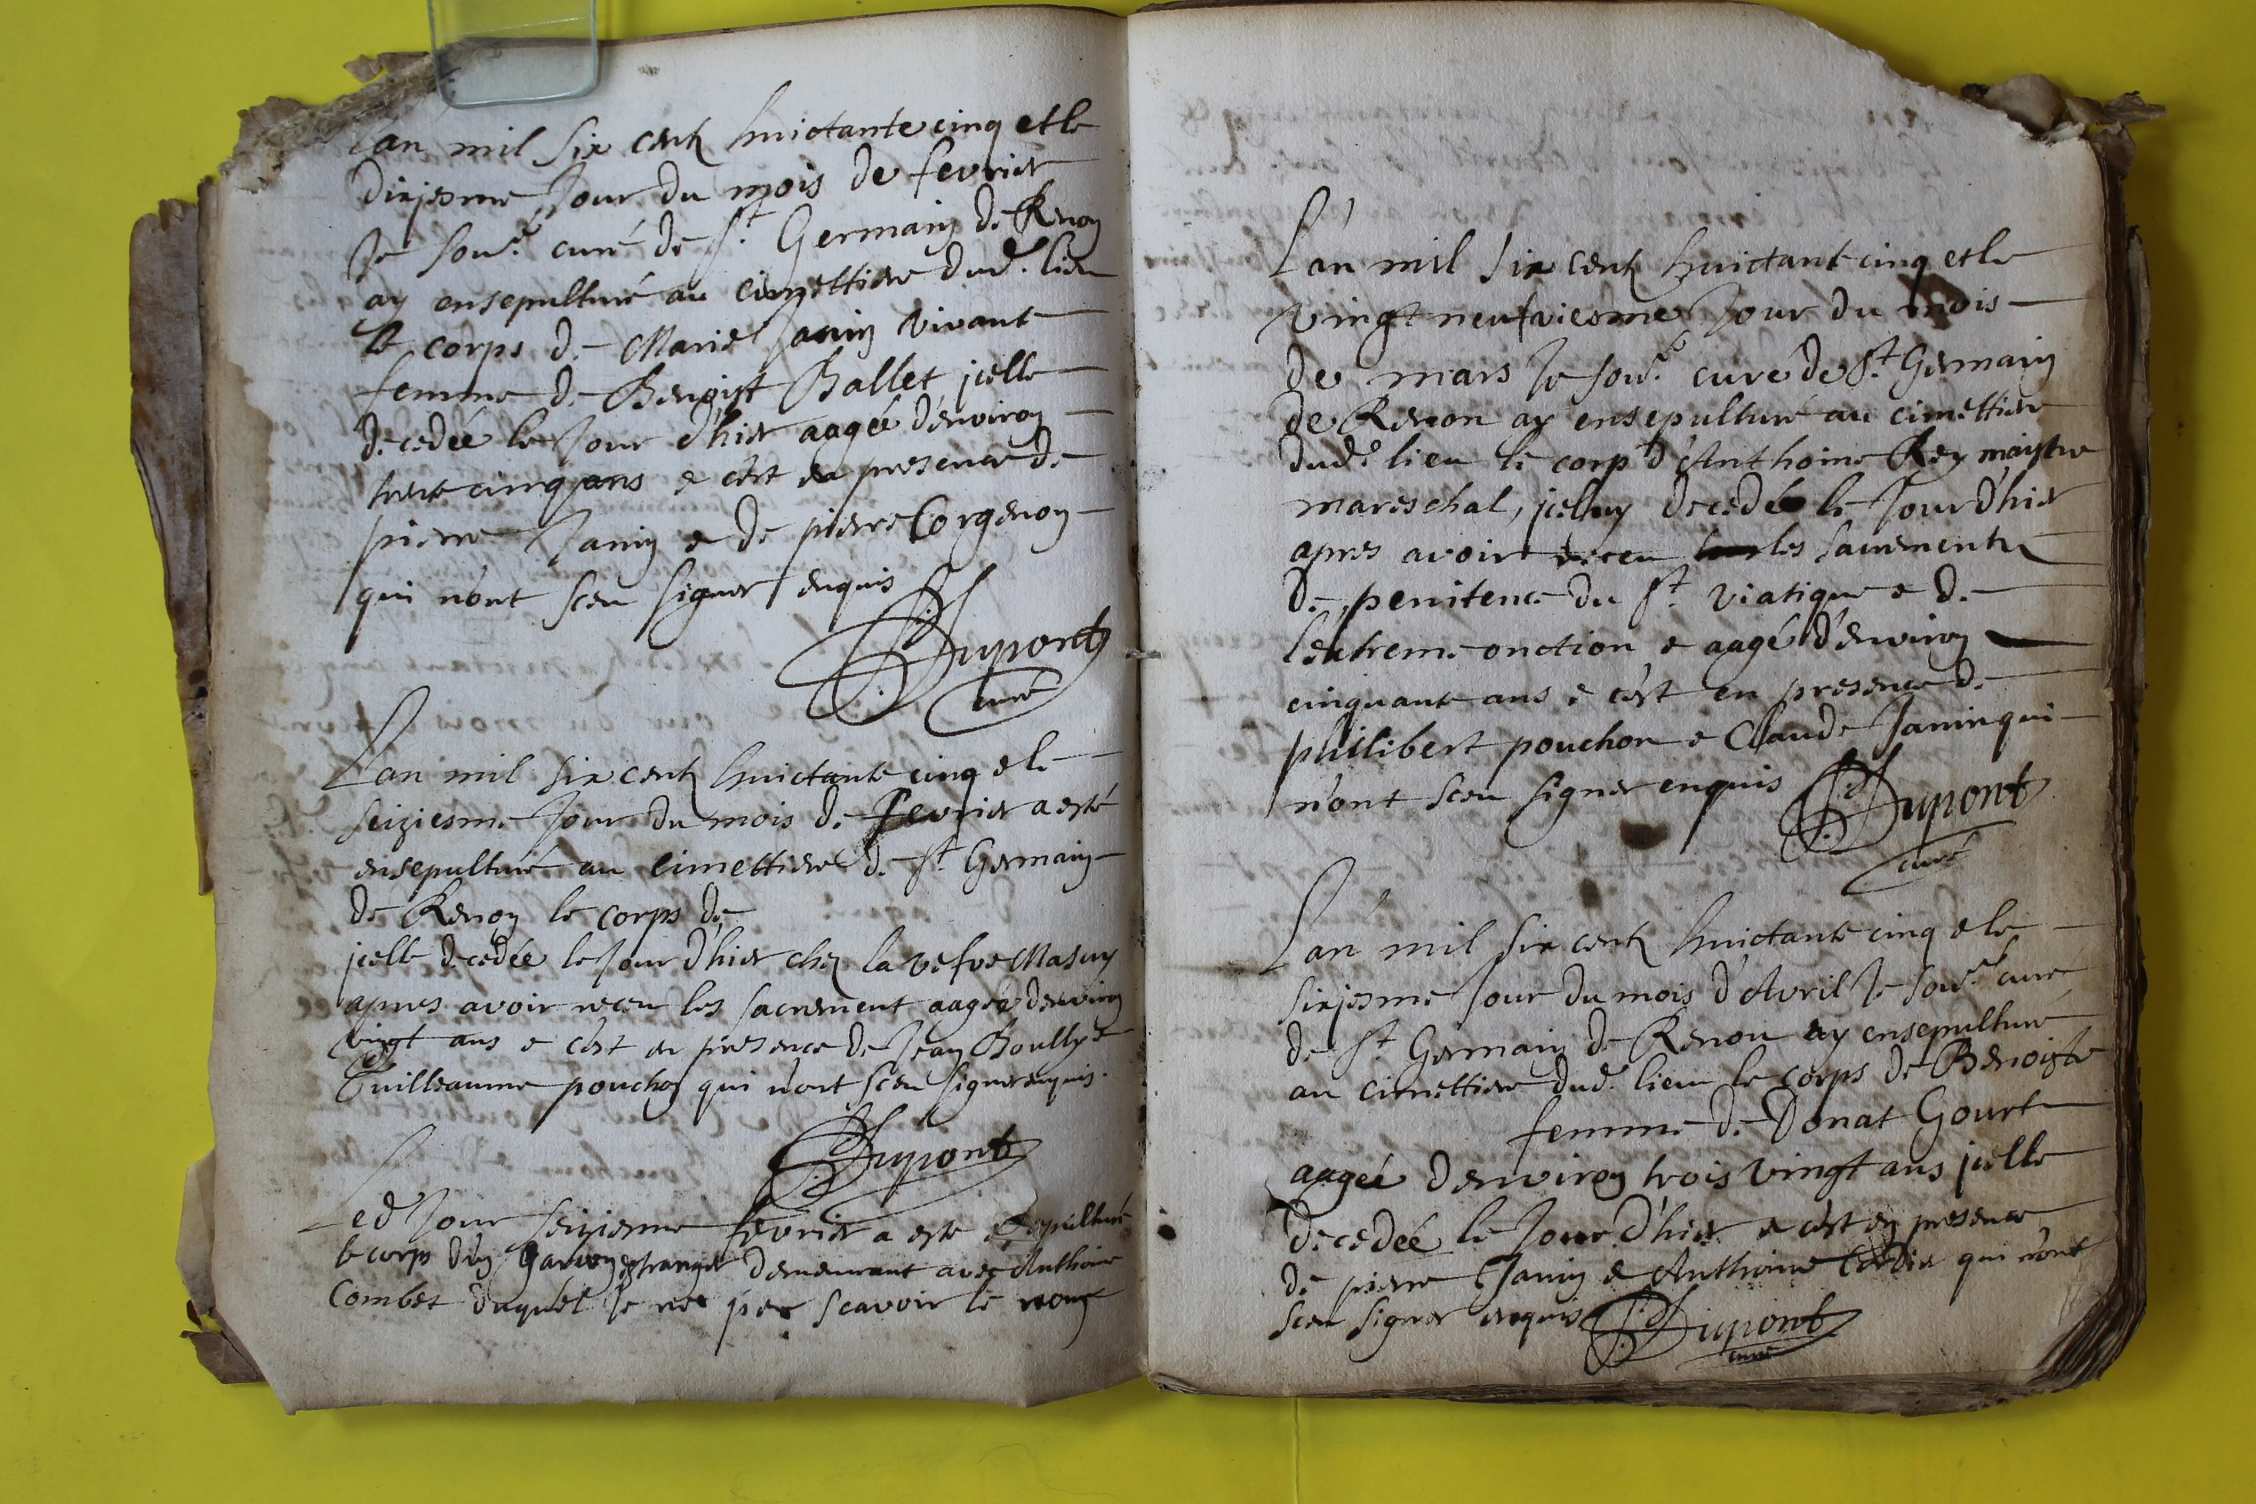 L'an mil six cent huictante cinq et le
dixjesme Jour du mois de fevrier
Je sous.né curé de St Germain de Renon
ay ensepulturé au cimettiere dud. lieu
le corps de Marie Janin vivant
femme de Benoist Ballet jcelle
decedée le Jour d'hier aagée d'environ
trente cinq ans e c'est en presence de
pierre Janin e de pierre Corgenon
qui n'ont sceu signer enquis
Dupont
curé
L'an mil six cent huictante cinq e le
seiziesme Jour du mois de fevrier a esté
ensepulturé au cimettiere de St Germain
de Renon le corps de
jcelle decedée le Jour d'hier chez la vefve Masuy
apres avoir receu les sacrement aagée d'environ
vingt ans e c'est en presence de Jean Boully e
Guilleaume pouchon qui n'ont sceu signer enquis.
Dupont
Led Jour seiziesme fevrier a este ensepulturé
le corps d'un garcon estranger demeurant avec Anthoine
Combet duquel Je n'ay peu scavoir le nom
L'an mil six cent huictante cinq et le
vingt neufviesme Jour du mois
de mars Je sous.né curé de St Germain
de Renon ay ensepulturé au cimettiere
dud. lieu le corp d'Anthoine Rey maistre
mareschal, jceluy decedé le Jour d'hier
apres avoir receu les sacrements
de penitence du St viatique e de
l'extreme onction e aagé d'environ
cinquante ans e c'est en presence de
philibert pouchon e Claude Janin qui
n'ont sceu signer enquis
Dupont
curé
L'an mil six cent huictante cinq e le
sixjesme Jour du mois d'Avril Je sous.né curé
de St Germain de Renon ay ensepulturé
au cimettiere dud. lieu le corps de Benoiste
femme de Donat Gourt
aagée d'environ trois vingt ans jcelle
decedée le Jour d'hier e c'est en presence
de pierre Janin e Anthoine Cordier qui n'ont
sceu signer enquis
Dupont
curé